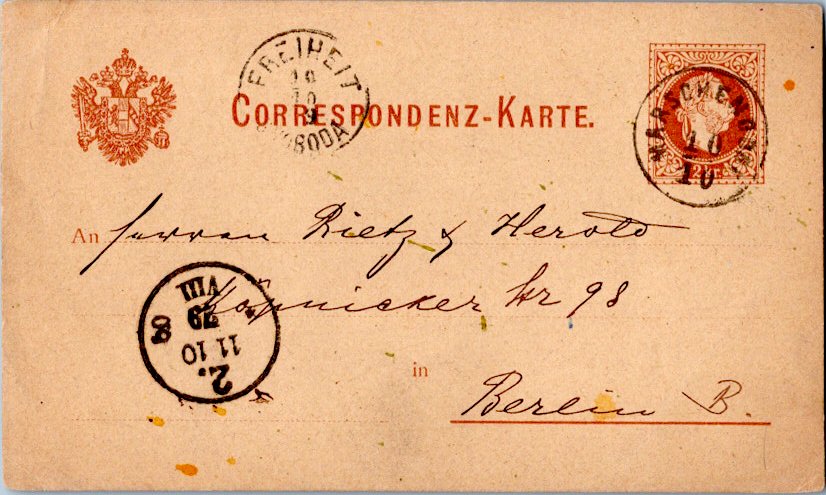 FREIHEIT
10
10
SVOBODA
CORRESPONDENZ-KARTE.
MARSCHENDORF
10
10
2 kr.
An Herren Rietz & Herold
Köpnicker Str 98
in
Berlin B.
2.
11 10
79
VIII